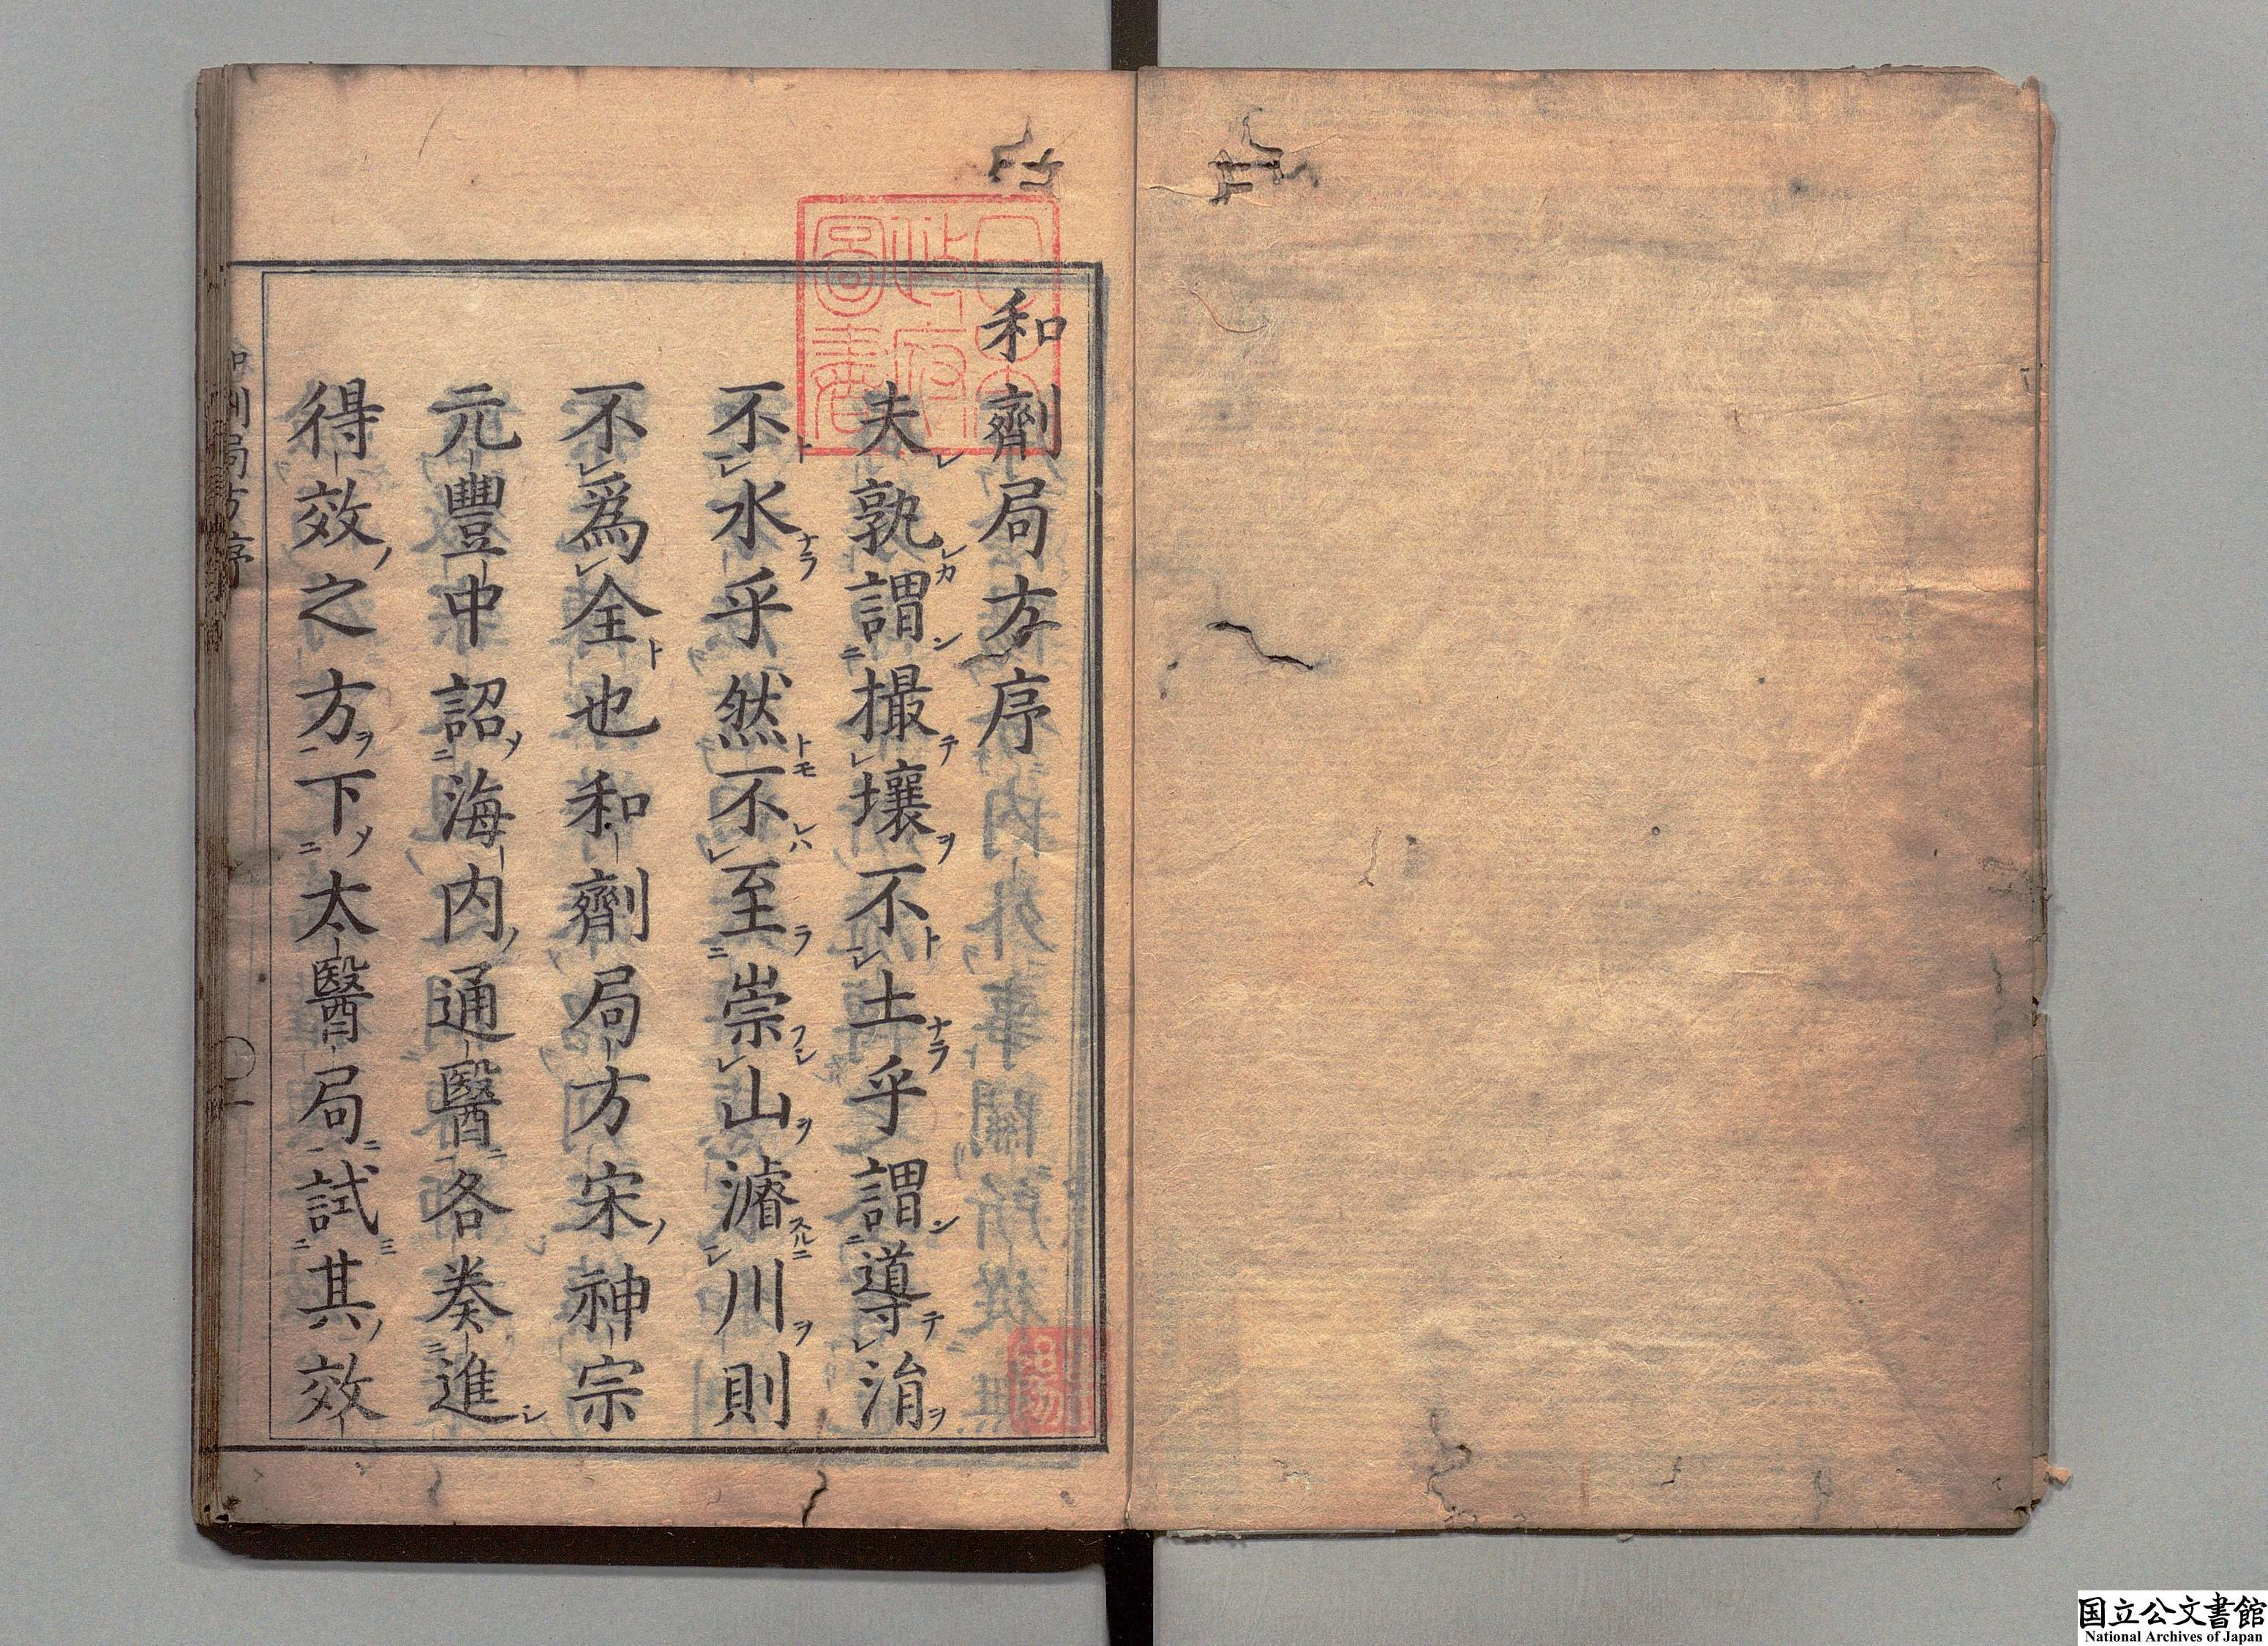 和劑局方序
夫孰謂撮壤不土乎謂導涓
不水乎然不至崇山濬川則
不爲全也和劑局方宋神宗
元豐中詔海内通醫各奏進
得效之方下太醫局試其效
和劑局方序
一
国立公文書館
National Archives of Japan